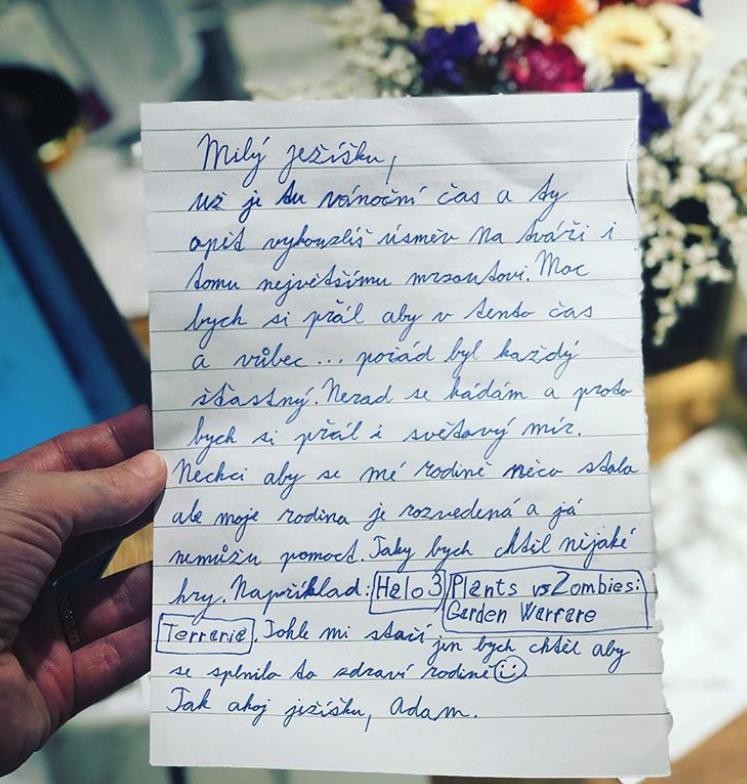 Milý ježíšku,
už je tu vánoční čas a ty
opět vykouzlíš úsměv na tváři i
tomu největšímu mrzoutovi. Moc
bych si přál aby v tento čas
a vůbec... pořád byl každý
šťastný. Nerad se hádám a proto
bych si přál i světový mír.
Nechci aby se mé rodině něco stalo
ale moje rodina je rozvedená a já
nemůžu pomoct. Taky bych chtěl nijaké
hry. Například: Halo 3 Plants vs Zombies:
Garden Warfare
Terraria. Tohle mi stačí jen bych chtěl aby
se splnilo to zdraví rodině
Tak ahoj ježíšku, Adam.